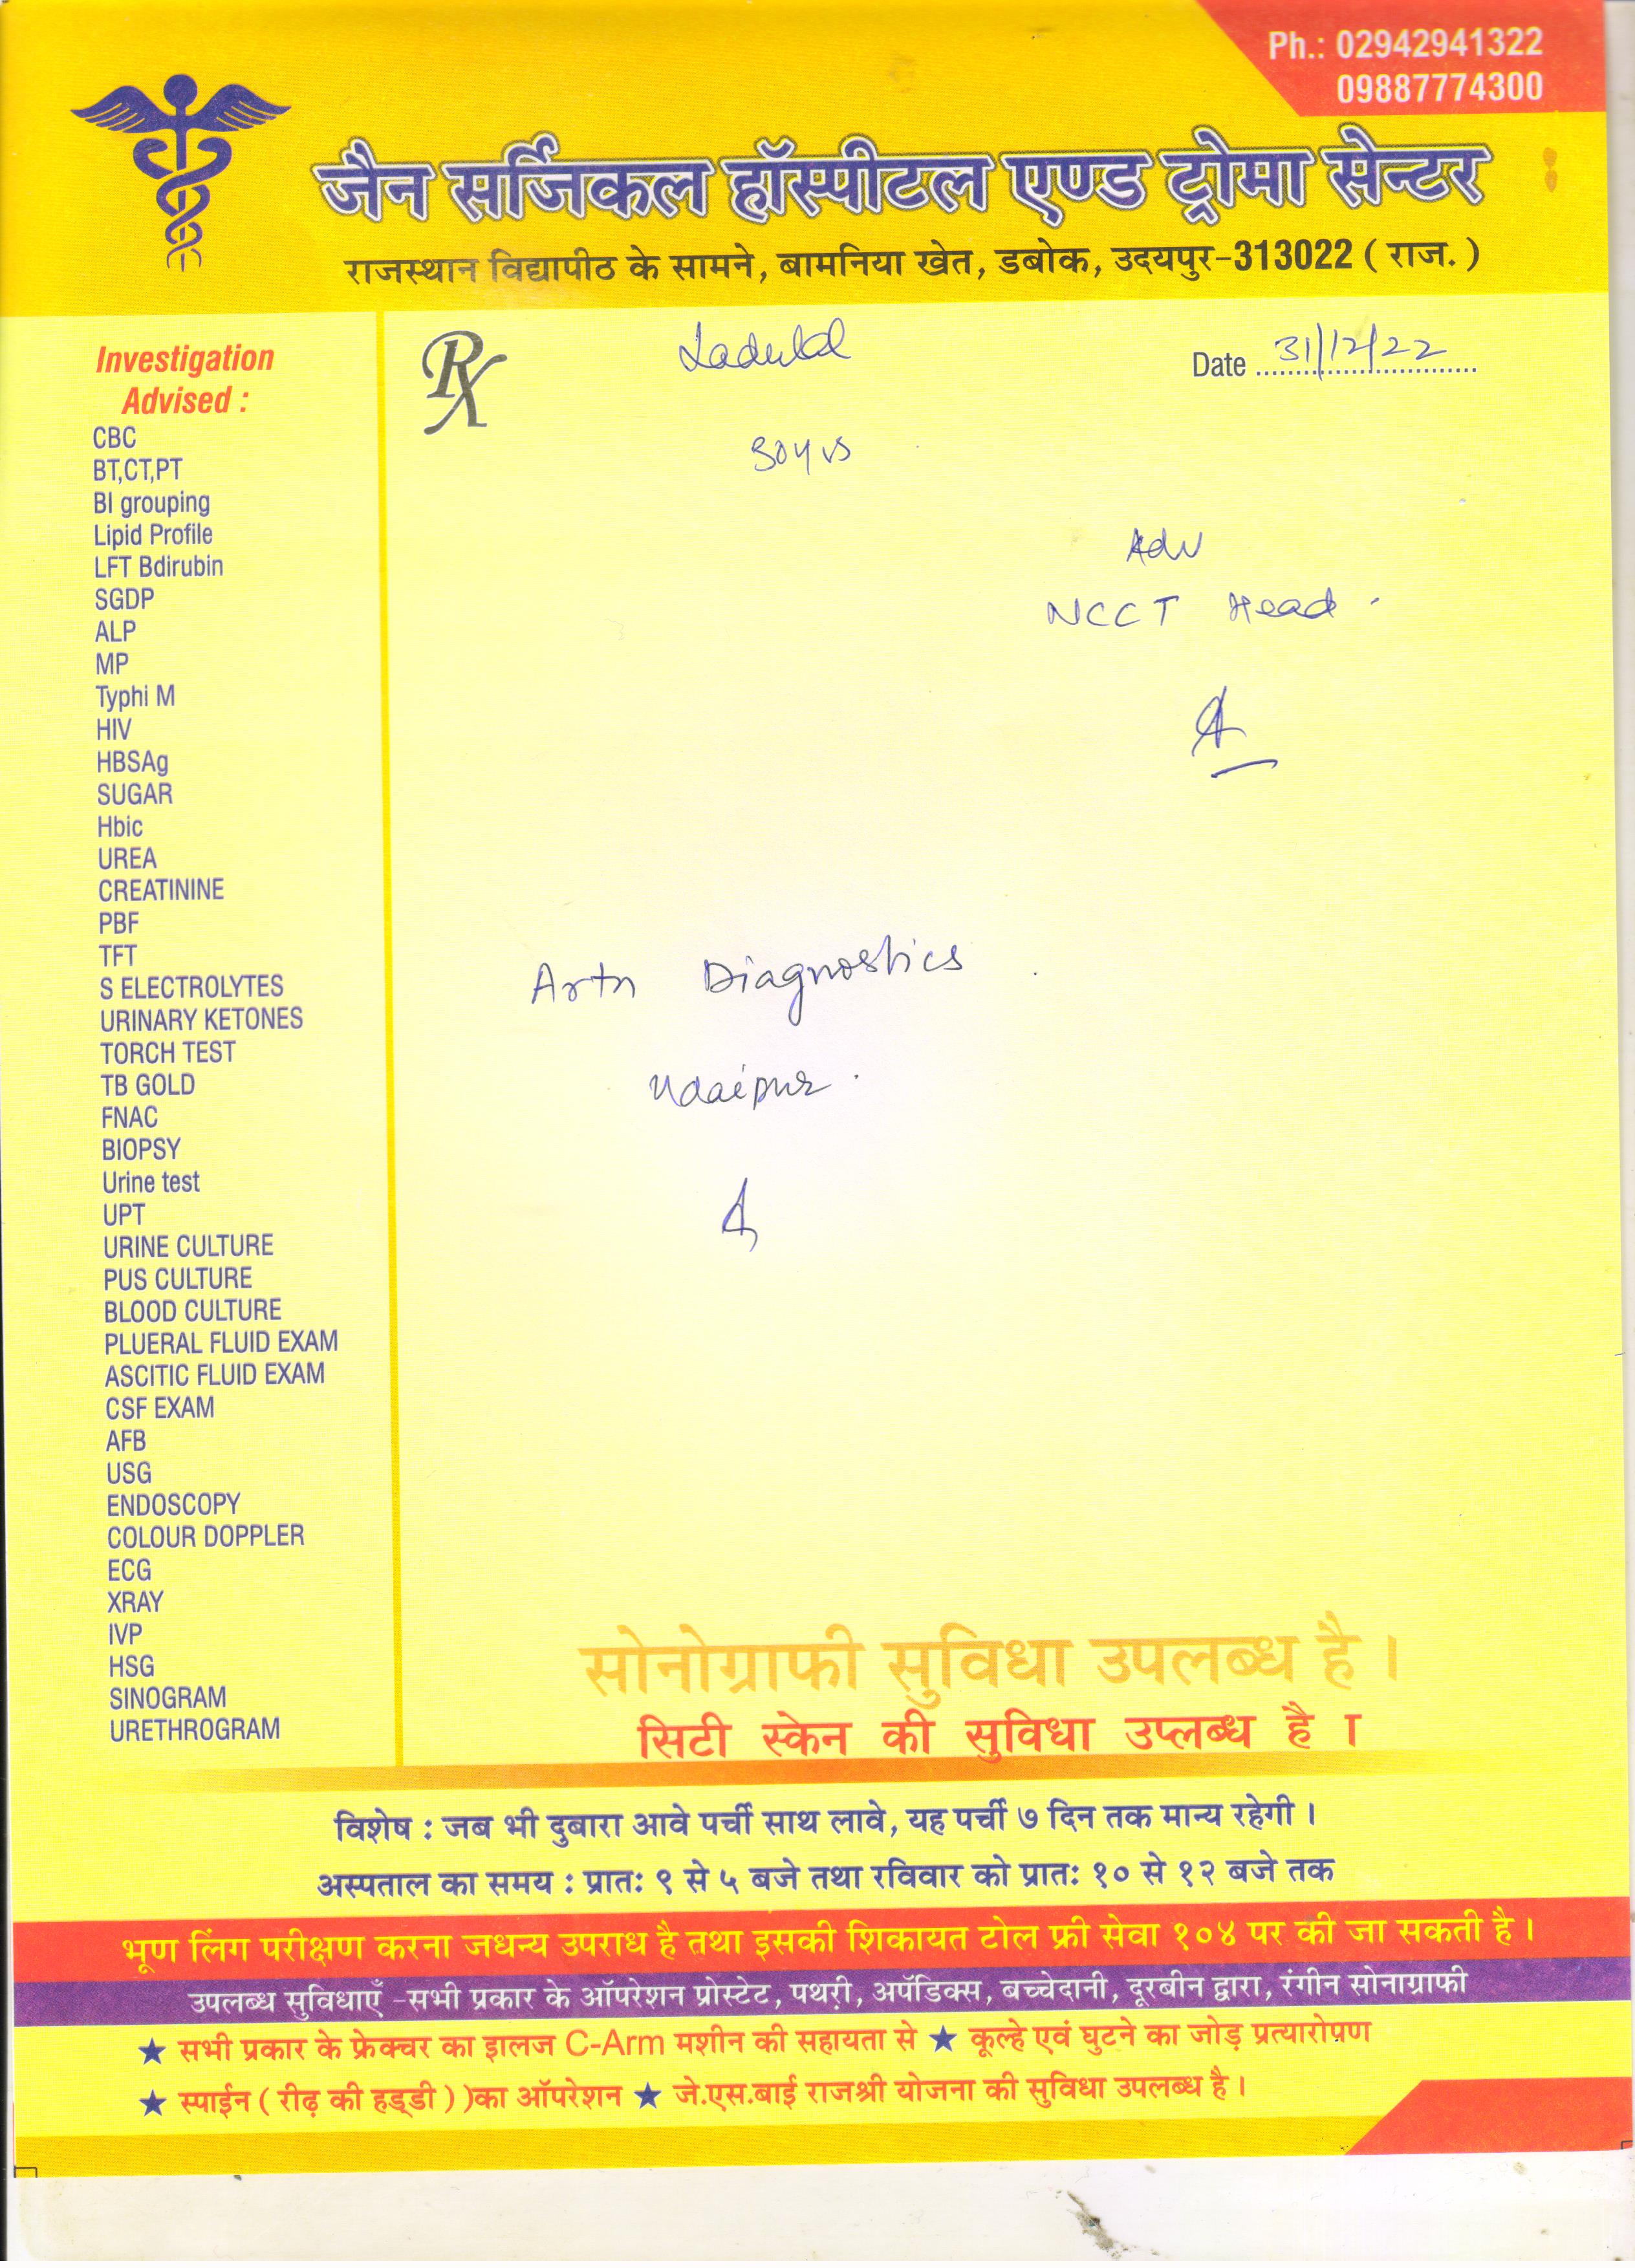 Ph.: 02942941322
09887774300
जैन सर्जिकल हॉस्पीटल एण्ड ट्रोमा सेन्टर
राजस्थान विद्यापीठ के सामने, बामनिया खेत, डबोक, उदयपुर-313022 ( राज. )
Investigation
Advised :
CBC
BT,CT,PT
BI grouping
Lipid Profile
LFT Bdirubin
SGDP
ALP
MP
Typhi M
HIV
HBSAg
SUGAR
Hbic
UREA
CREATININE
PBF
TFT
S ELECTROLYTES
URINARY KETONES
TORCH TEST
TB GOLD
FNAC
BIOPSY
Urine test
UPT
URINE CULTURE
PUS CULTURE
BLOOD CULTURE
PLUERAL FLUID EXAM
ASCITIC FLUID EXAM
CSF EXAM
AFB
USG
ENDOSCOPY
COLOUR DOPPLER
ECG
XRAY
IVP
HSG
SINOGRAM
URETHROGRAM
Rx
Ladulal
Date 31/12/22
30yrs
Adv
NCCT Head
Diagnostics
Udaipur
सोनोग्राफी सुविधा उपलब्ध है ।
सिटी स्केन की सुविधा उप्लब्ध है ।
विशेष : जब भी दुबारा आवे पर्ची साथ लावे, यह पर्ची ७ दिन तक मान्य रहेगी ।
अस्पताल का समय : प्रातः ९ से ५ बजे तथा रविवार को प्रातः १० से १२ बजे तक
भूण लिंग परीक्षण करना जधन्य उपराध है तथा इसकी शिकायत टोल फ्री सेवा १०४ पर की जा सकती है ।
उपलब्ध सुविधाएँ -सभी प्रकार के ऑपरेशन प्रोस्टेट, पथरी, अपॅडिक्स, बच्चेदानी, दूरबीन द्वारा, रंगीन सोनाग्राफी
★ सभी प्रकार के फ्रेक्चर का इालज C-Arm मशीन की सहायता से ★ कूल्हे एवं घुटने का जोड़ प्रत्यारोपण
★ स्पाईन ( रीढ़ की हड्डी ) )का ऑपरेशन ★ जे.एस.बाई राजश्री योजना की सुविधा उपलब्ध है ।